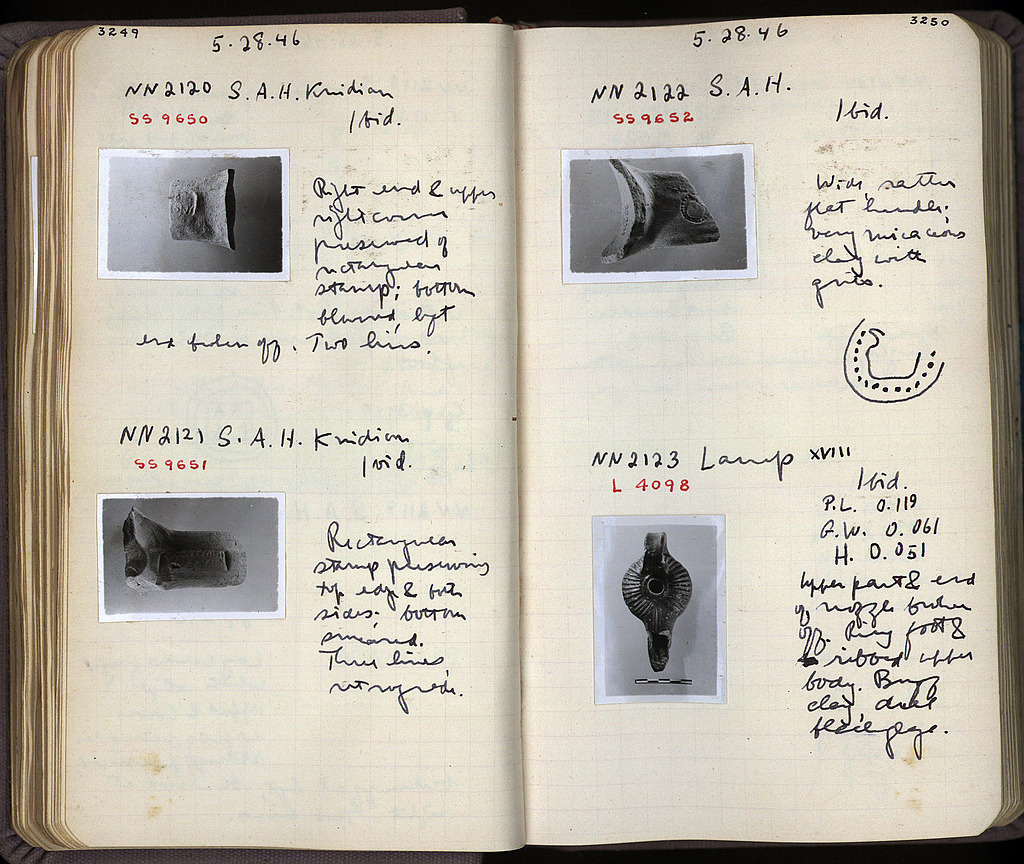 3249
5·28·46
NN2120 S.A.H. Knidian
SS 9650
Ibid.
Right end & upper
right corner
preserved of
rectangular
stamp; bottom
blurred, left
end broken off. Two lines.
NN2121 S.A.H. Knidian
SS 9651
Ibid.
Rectangular
stamp preserving
top edge & both
sides; bottom
smeared.
Three lines
retrograde.
3250
5·28·46
NN2122 S.A.H.
SS 9652
Ibid.
Wide, rather
flat handle;
very micaceous
clay with
grits.
NN2123 Lamp XVIII
L 4098
Ibid.
P.L. 0.119
G.W. 0.061
H. 0.051
Upper part & end
of nozzle broken
off. Ring foot &
ribbed upper
body. Buff
clay, dull
black glaze.